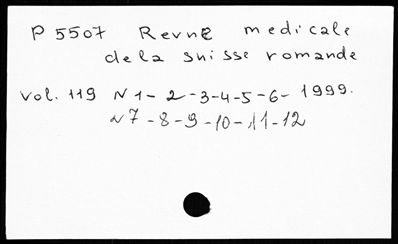 P 5507 Revue medicale
de la suisse romande
vol. 119 N 1-2-3-4-5-6-1999.
N 7-8-9-10-11-12